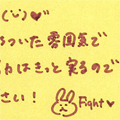 ついた雰囲気で
はきっと実るので
さい!
Fight